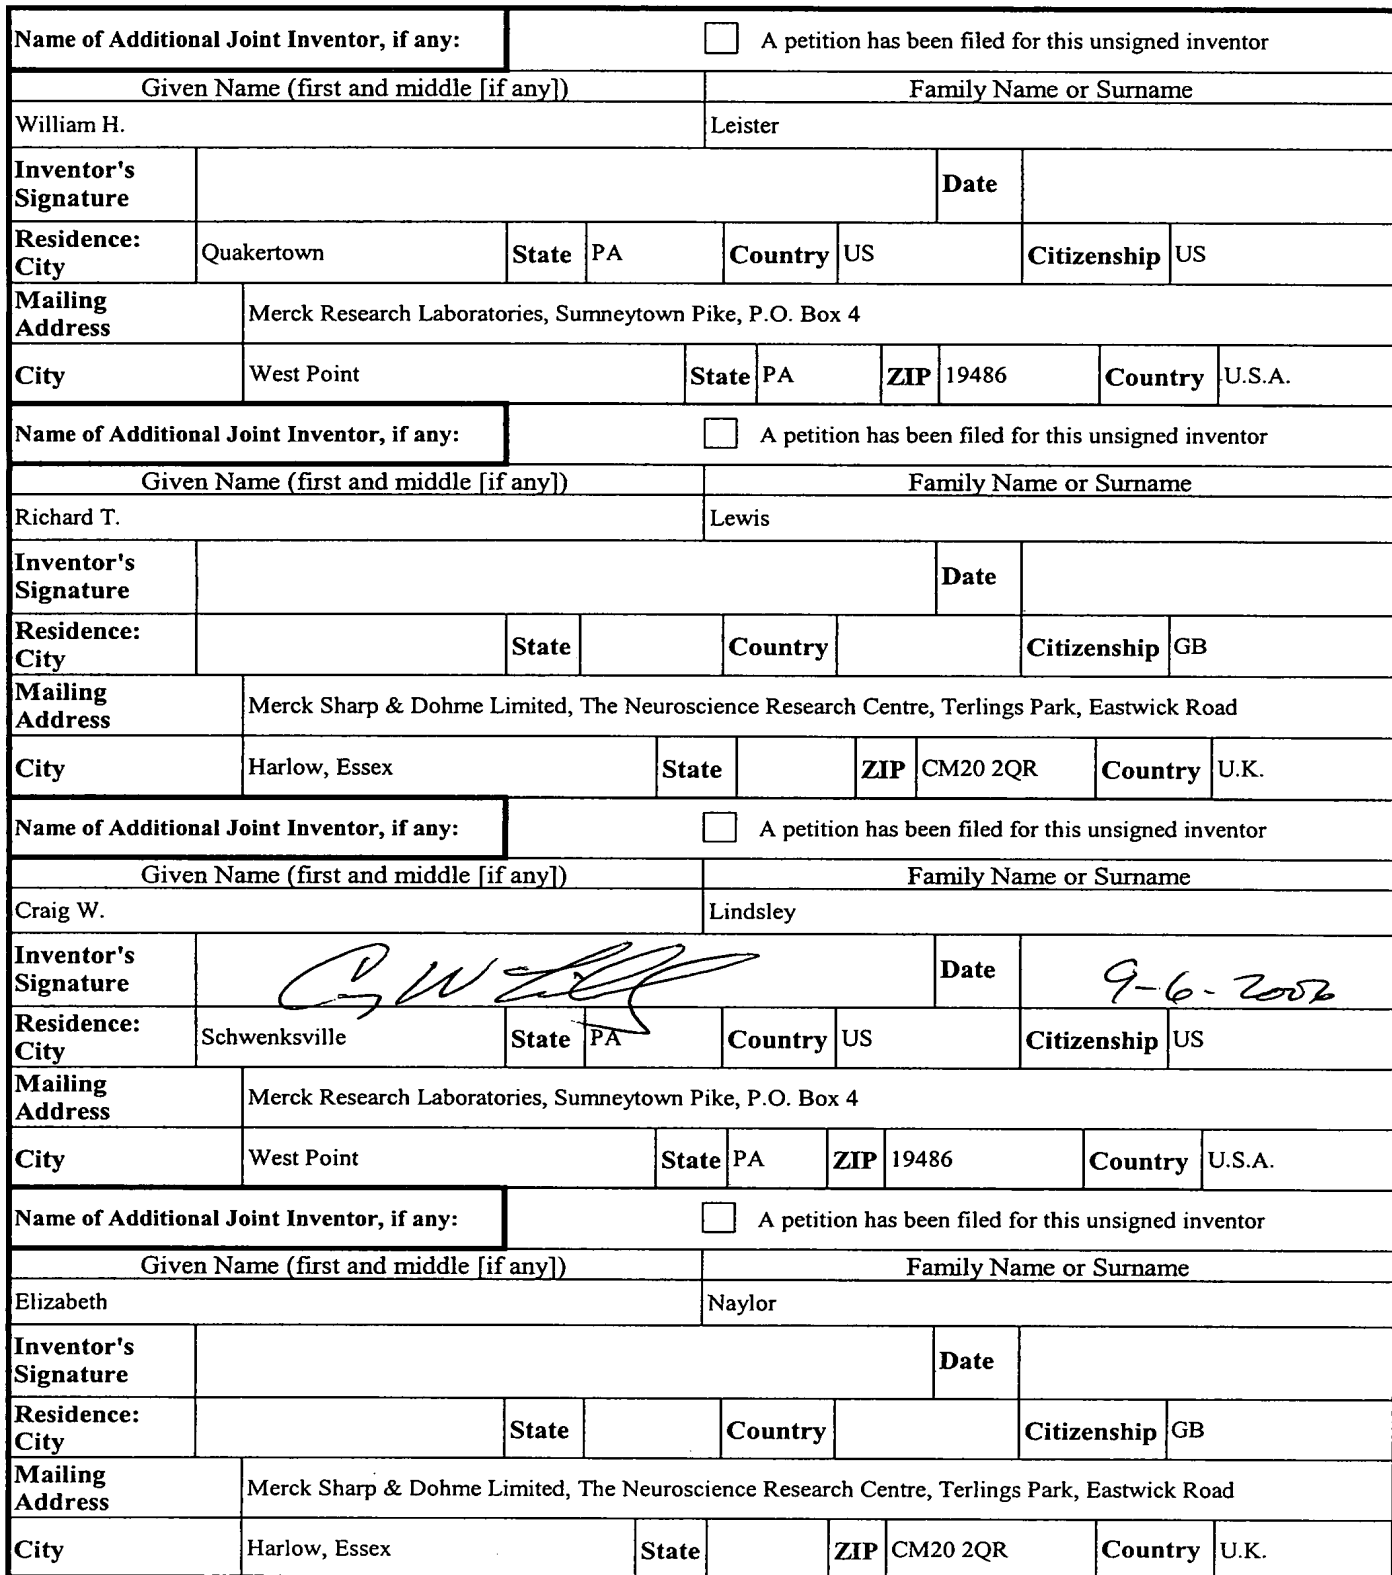 Name of Additional Joint Inventor, if any: A petition has been filed for this unsigned inventor
Given Name (first and middle [if any]) Family Name or Surname
William H. Leister
Inventor's Signature Date
Residence: City Quakertown State PA Country US Citizenship US
Mailing Address Merck Research Laboratories, Sumneytown Pike, P.O. Box 4
City West Point State PA ZIP 19486 Country U.S.A.
Name of Additional Joint Inventor, if any: A petition has been filed for this unsigned inventor
Given Name (first and middle [if any]) Family Name or Surname
Richard T. Lewis
Inventor's Signature Date
Residence: City State Country Citizenship GB
Mailing Address Merck Sharp & Dohme Limited, The Neuroscience Research Centre, Terlings Park, Eastwick Road
City Harlow, Essex State ZIP CM20 2QR Country U.K.
Name of Additional Joint Inventor, if any: A petition has been filed for this unsigned inventor
Given Name (first and middle [if any]) Family Name or Surname
Craig W. Lindsley
Inventor's Signature Date 9-6-2006
Residence: City Schwenksville State PA Country US Citizenship US
Mailing Address Merck Research Laboratories, Sumneytown Pike, P.O. Box 4
City West Point State PA ZIP 19486 Country U.S.A.
Name of Additional Joint Inventor, if any: A petition has been filed for this unsigned inventor
Given Name (first and middle [if any]) Family Name or Surname
Elizabeth Naylor
Inventor's Signature Date
Residence: City State Country Citizenship GB
Mailing Address Merck Sharp & Dohme Limited, The Neuroscience Research Centre, Terlings Park, Eastwick Road
City Harlow, Essex State ZIP CM20 2QR Country U.K.